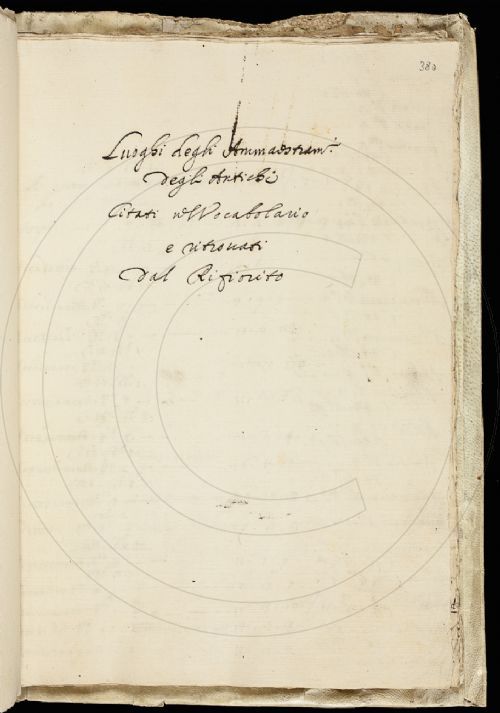 380
Luoghi degli Ammaestram.ti
degli Antichi
Citati nel Vocabolario
e ritrovati
Dal Rifiorito